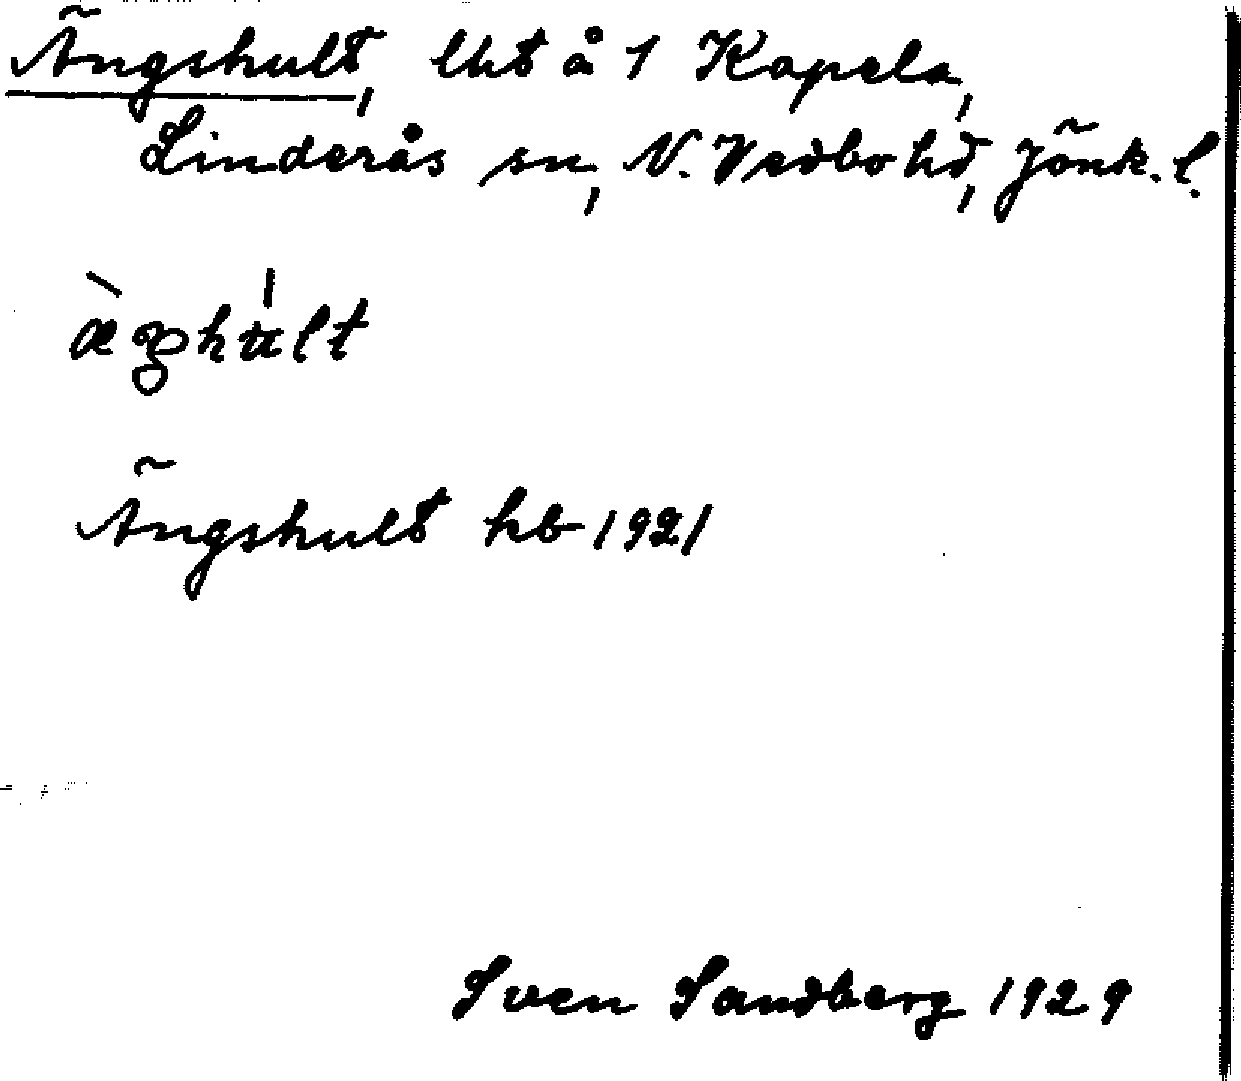 Ängshult, lht å 1 Kapela,
Linderås sn, N. Vedbo hd, Jönk. l.
Ängshult hb 1921
Sven Sandberg 1929